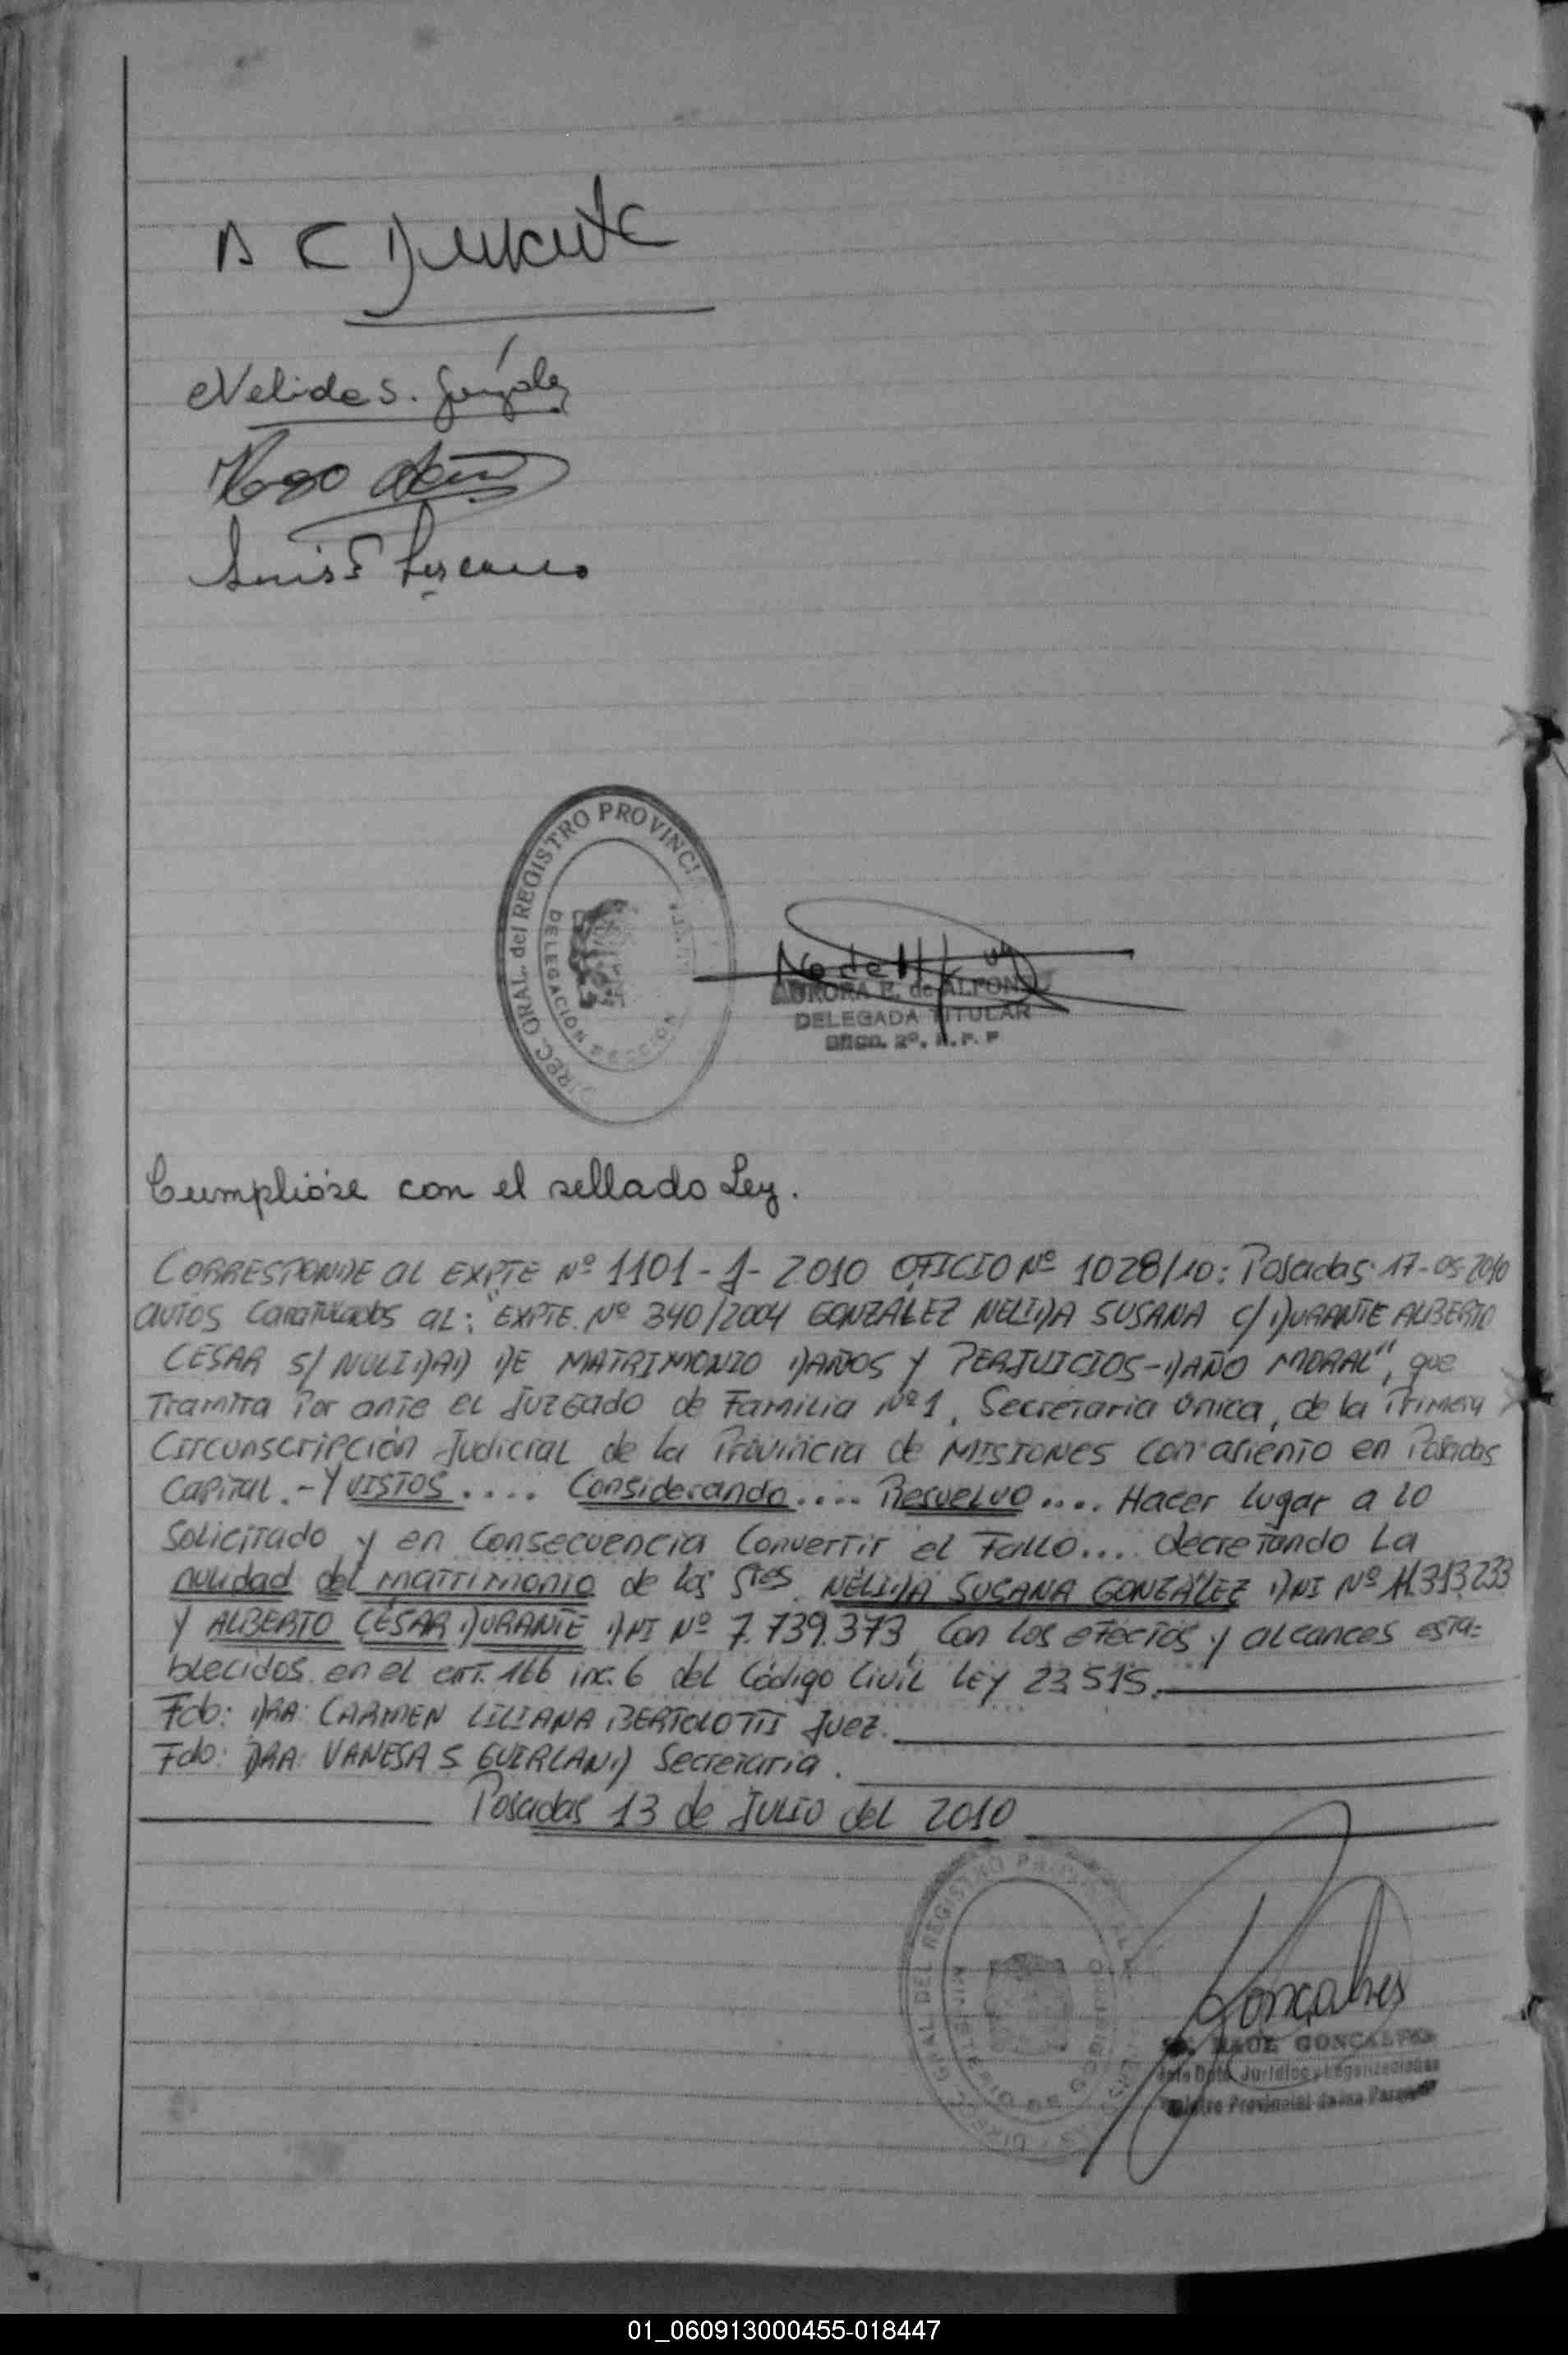 A C Durante
Nelida S. González
Hugo
Luis
DIREC. GRAL. del REGISTRO PROVINCIAL
DELEGACION SECCION
AURORA E. de ALFONSO
DELEGADA TITULAR
Secc. 2ª. R. P. P
Cumplióse con el sellado Ley.
CORRESPONDE AL EXPTE Nº 1101-J-2010 OFICIO Nº 1028/10: Posadas 17-05-2010
autos Caratulados al: "EXPTE. Nº 340/2004 GONZÁLEZ NELIDA SUSANA C/ DURANTE ALBERTO
CESAR S/ NULIDAD DE MATRIMONIO DAÑOS Y PERJUICIOS-DAÑO MORAL", que
Tramita Por ante el Juzgado de Familia Nº1, Secretaria Única, de la Primera
Circunscripción Judicial de la Provincia de MISIONES con asiento en Posadas
Capital.- Y VISTOS.... Considerando.... Resuelvo.... Hacer lugar a lo
Solicitado y en Consecuencia Convertir el Fallo.... decretando La
nulidad del matrimonio de los Sres NELIDA SUSANA GONZÁLEZ DNI Nº 11.313.233
Y ALBERTO CÉSAR DURANTE DNI Nº 7.739.373 Con los efectos y alcances esta=
blecidos en el art. 166 inc. 6 del Código Civil LEY 23.515.
Fdo: DRA: CARMEN LILIANA BERTOLOTTI Juez.
Fdo: DRA: VANESA S GUERLAND Secretaria.
Posadas 13 de Julio del 2010
DIREC. GRAL DEL REGISTRO PROVINCIAL
MINISTERIO DE GOBIERNO
Gonçalves
RAUL GONCALVES
Jefe Dpto. Jurídico y Legalizaciones
Registro Provincial de las Personas
01_060913000455-018447